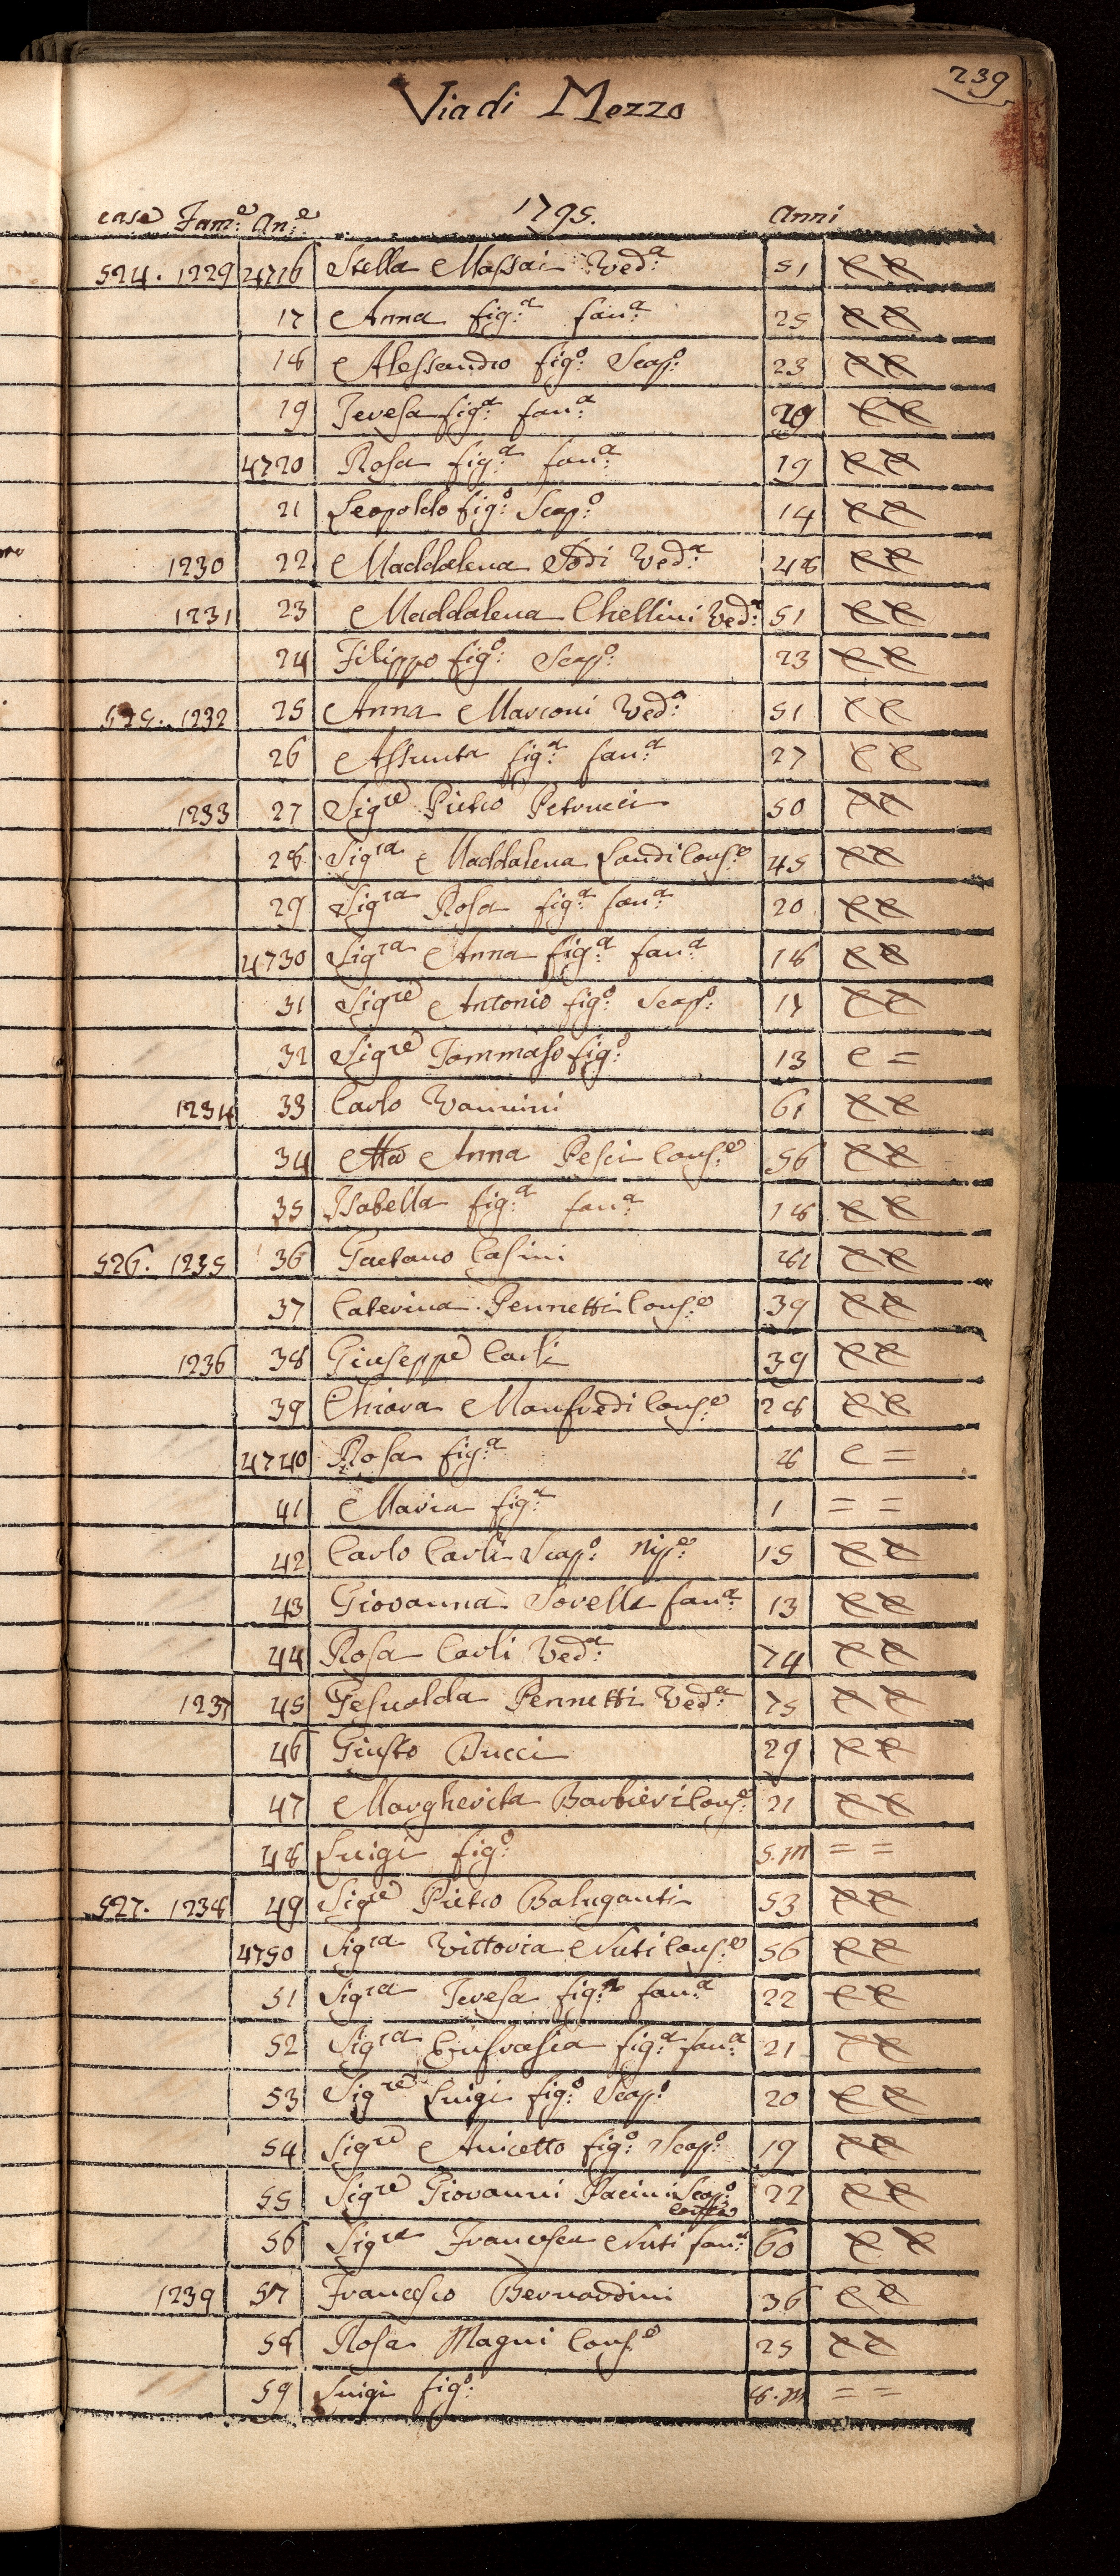 239
Via di Mezzo
case Fam:e An:e 1795. Anni
524. 1229 4716 Stella Massai Ved:a 51
17 Anna fig:a fan:a 25
18 Alessandro fig:o Scap:o 23
19 Teresa fig:a fan:a 20
4720 Rosa fig:a fan:a 19
21 Leopoldo fig:o Scap:o 14
1230 22 Maddalena Sodi Ved:a 48
1231 23 Maddalena Chellini Ved:a 51
24 Filippo fig:o Scap:o 23
525. 1232 25 Anna Marconi Ved:a 51
26 Assunta fig:a fan:a 27
1233 27 Sigre Pietro Petrucci 50
28 Sigra Maddalena Landi Cons:e 45
29 Sigra Rosa fig:a fan:a 20
4730 Sigra Anna fig:a fan:a 18
31 Sigre Antonio fig:o Scap:o 17
32 Sigre Tommaso fig:o 13 C =
1234 33 Carlo Vannini 61
34 Anna Pesci Cons:e 56
35 Isabella fig:a fan:a 18
526. 1235 36 Gaetano Casini
37 Caterina Pennetti Cons:e 39
1236 38 Giuseppe Carli 39
39 Chiara Manfredi Cons:e 28
4740 Rosa fig:a 8 C =
41 Maria fig:a 1 = =
42 Carlo Carli Scap:o Nip:e 15
43 Giovanna Sorella fan:a 13
44 Rosa Carli Ved:a 74
1237 45 Gesualda Pennetti Ved:a 75
46 Giusto Bucci 29
47 Margherita Barbieri Cons:e 21
48 Luigi fig:o 5.m = =
527. 1238 49 Sigre Pietro Baluganti 53
4750 Sigra Vittoria Nuti Cons:e 56
51 Sigra Teresa fig:a fan:a 22
52 Sigra Eufrasia fig:a fan:a 21
53 Sigre Luigi fig:o Scap:o 20
54 Sigre Anicetto fig:o Scap:o 19
55 Sigre Giovanni Pacini Scap:o 22
56 Sigra Francesca Nuti fan:a 60
1239 57 Francesco Bernardini 36
58 Rosa Magni Cons:e 25
59 Luigi fig:o 8.m = =